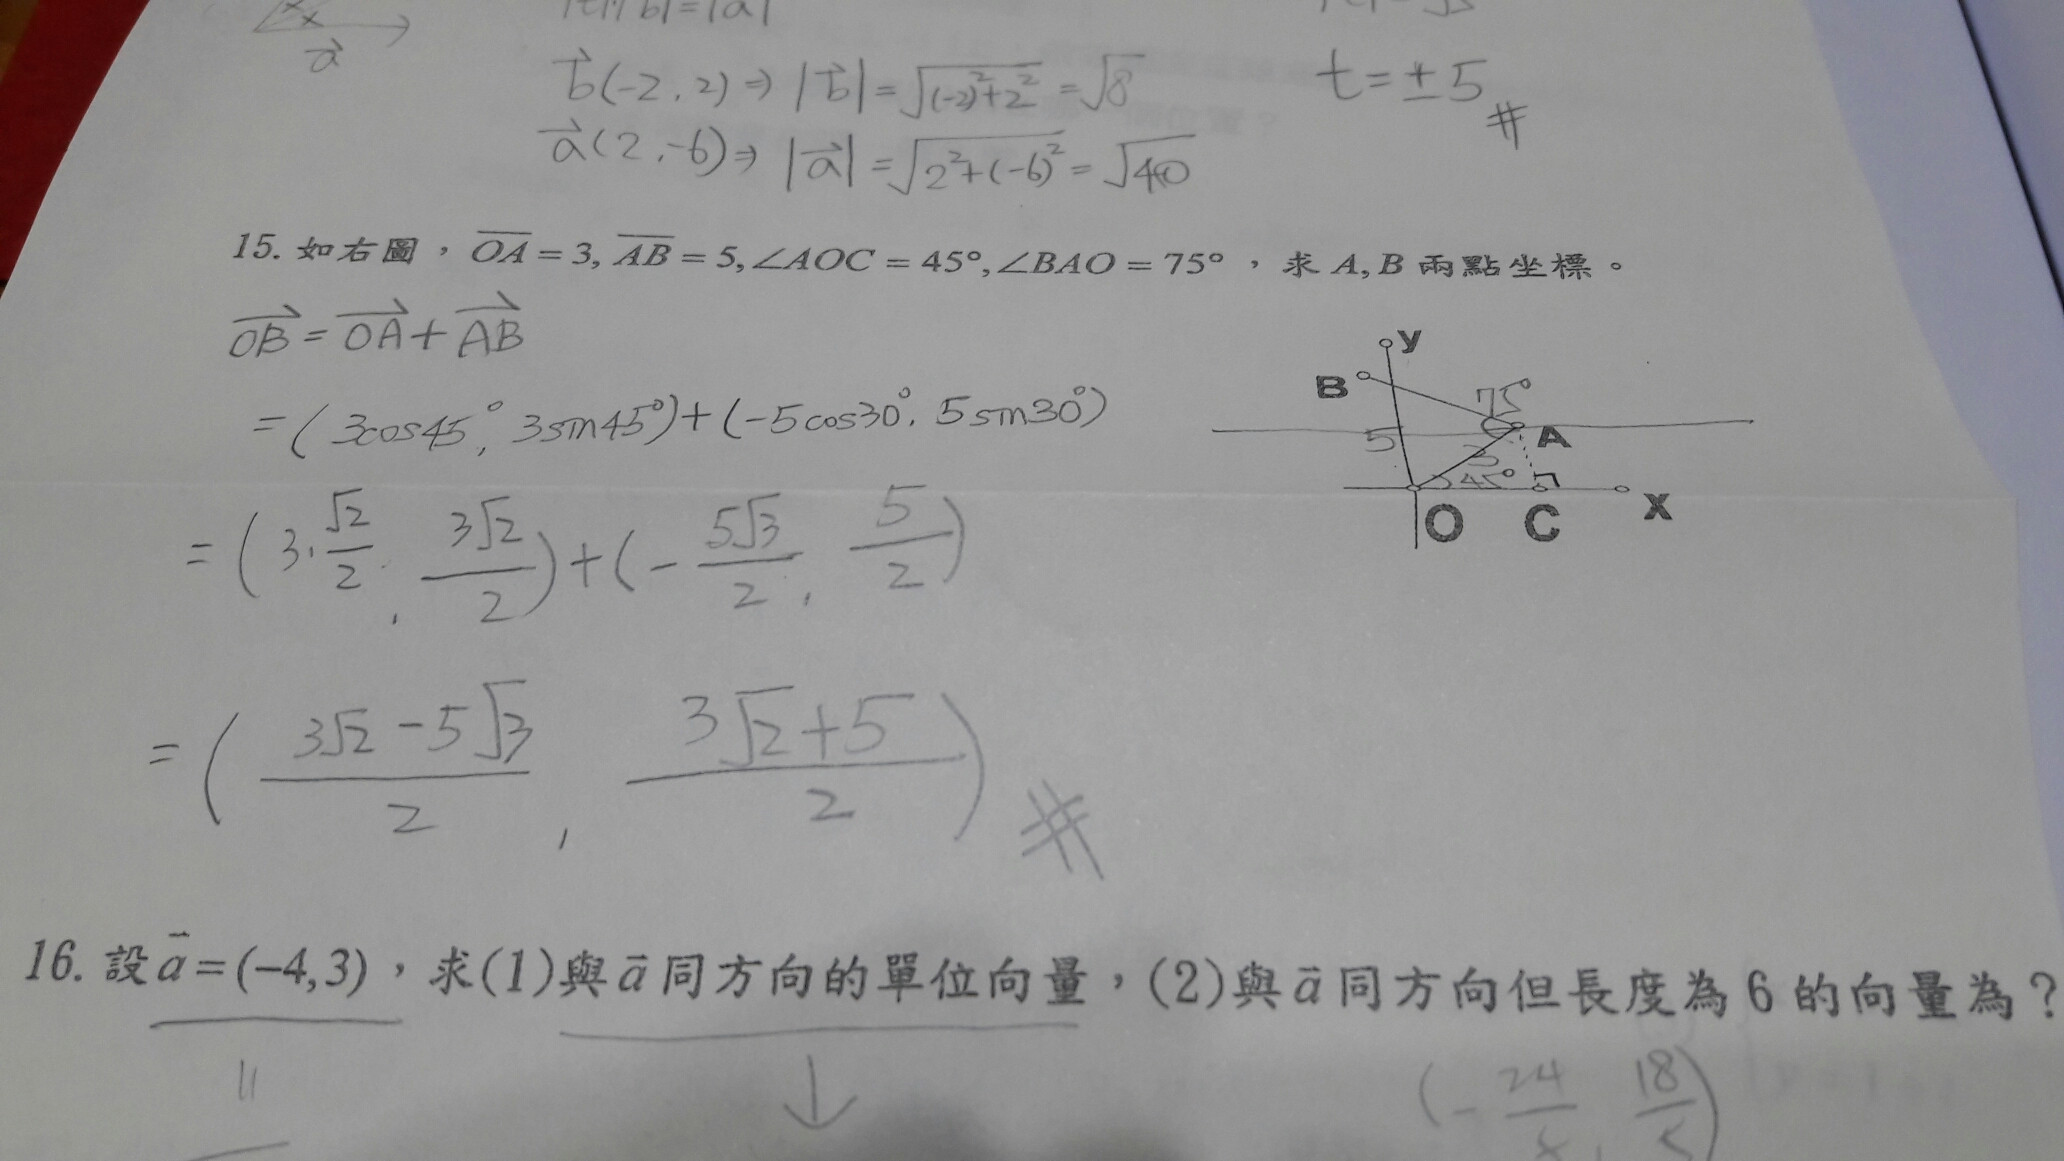 a⃗
|t||b|=|a|
b⃗(-2,2)⇒|b⃗|=√((-2)²+2²)=√8
t=±5#
a⃗(2,-6)⇒|a⃗|=√(2²+(-6)²)=√40
15. 如右圖，O̅A̅=3, A̅B̅=5,∠AOC=45°,∠BAO=75°，求A,B兩點坐標。
OB⃗=OA⃗+AB⃗
=(3cos45°, 3sin45°)+(-5cos30°, 5sin30°)
=(3·√2/2, 3√2/2)+(-5√3/2, 5/2)
=((3√2-5√3)/2, (3√2+5)/2)#
y
B
75°
5
A
3
45°
O
C
x
16. 設a⃗=(-4,3)，求(1)與a⃗同方向的單位向量，(2)與a⃗同方向但長度為6的向量為？
(-24/5, 18/5)